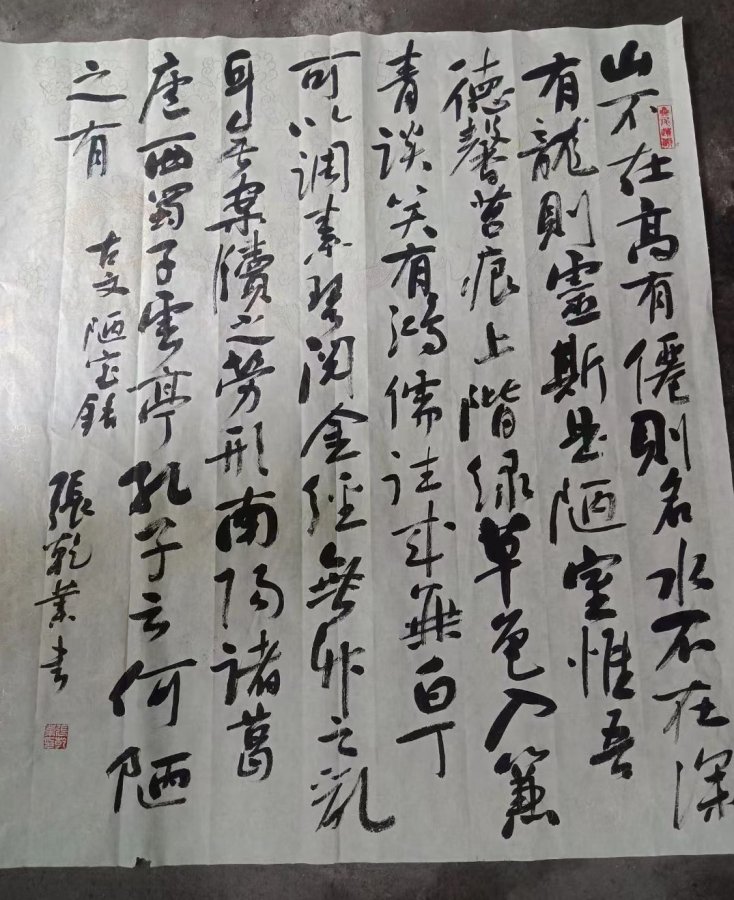 山不在高有僊則名水不在深
有龍則靈斯是陋室惟吾
德馨苔痕上階绿草色入簾
青談笑有鴻儒往来無白丁
可以调素琴阅金經無竹之亂
耳無案牘之勞形南阳諸葛
廬西蜀子雲亭孔子云何陋
之有
古文陋室銘
張乾業书